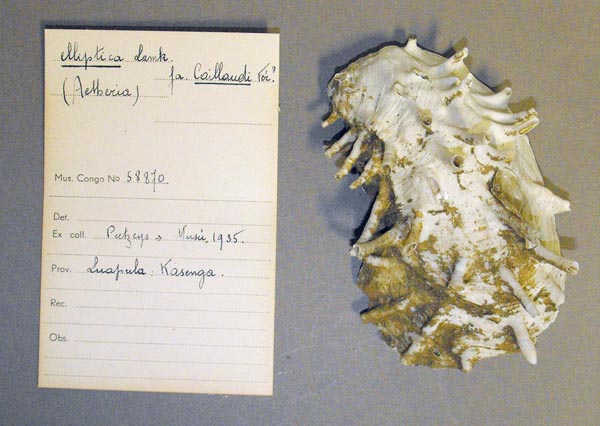 elliptica Lamk.
fa. Caillaudi Fér?
(Aetheria)
Mus. Congo No 58870.
Det.
Ex coll. Putzeys → Musée, 1935.
Prov. Luapula : Kasenga.
Rec.
Obs.